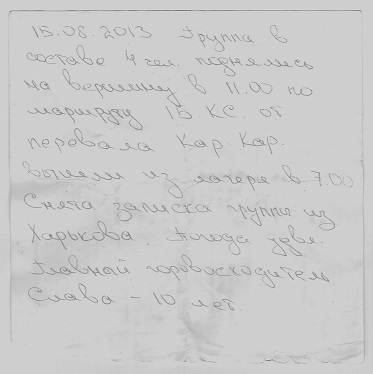 15.08.2013 Группа в
составе 4 чел. поднялись
на вершину в 11.00 по
маршруту 1Б КС. от
перевала Кар. Кар.
вышли из лагеря в 7.00
Снята записка группы из
Харькова. Погода удвл.
Главный горовосходитель
Слава - 10 лет.